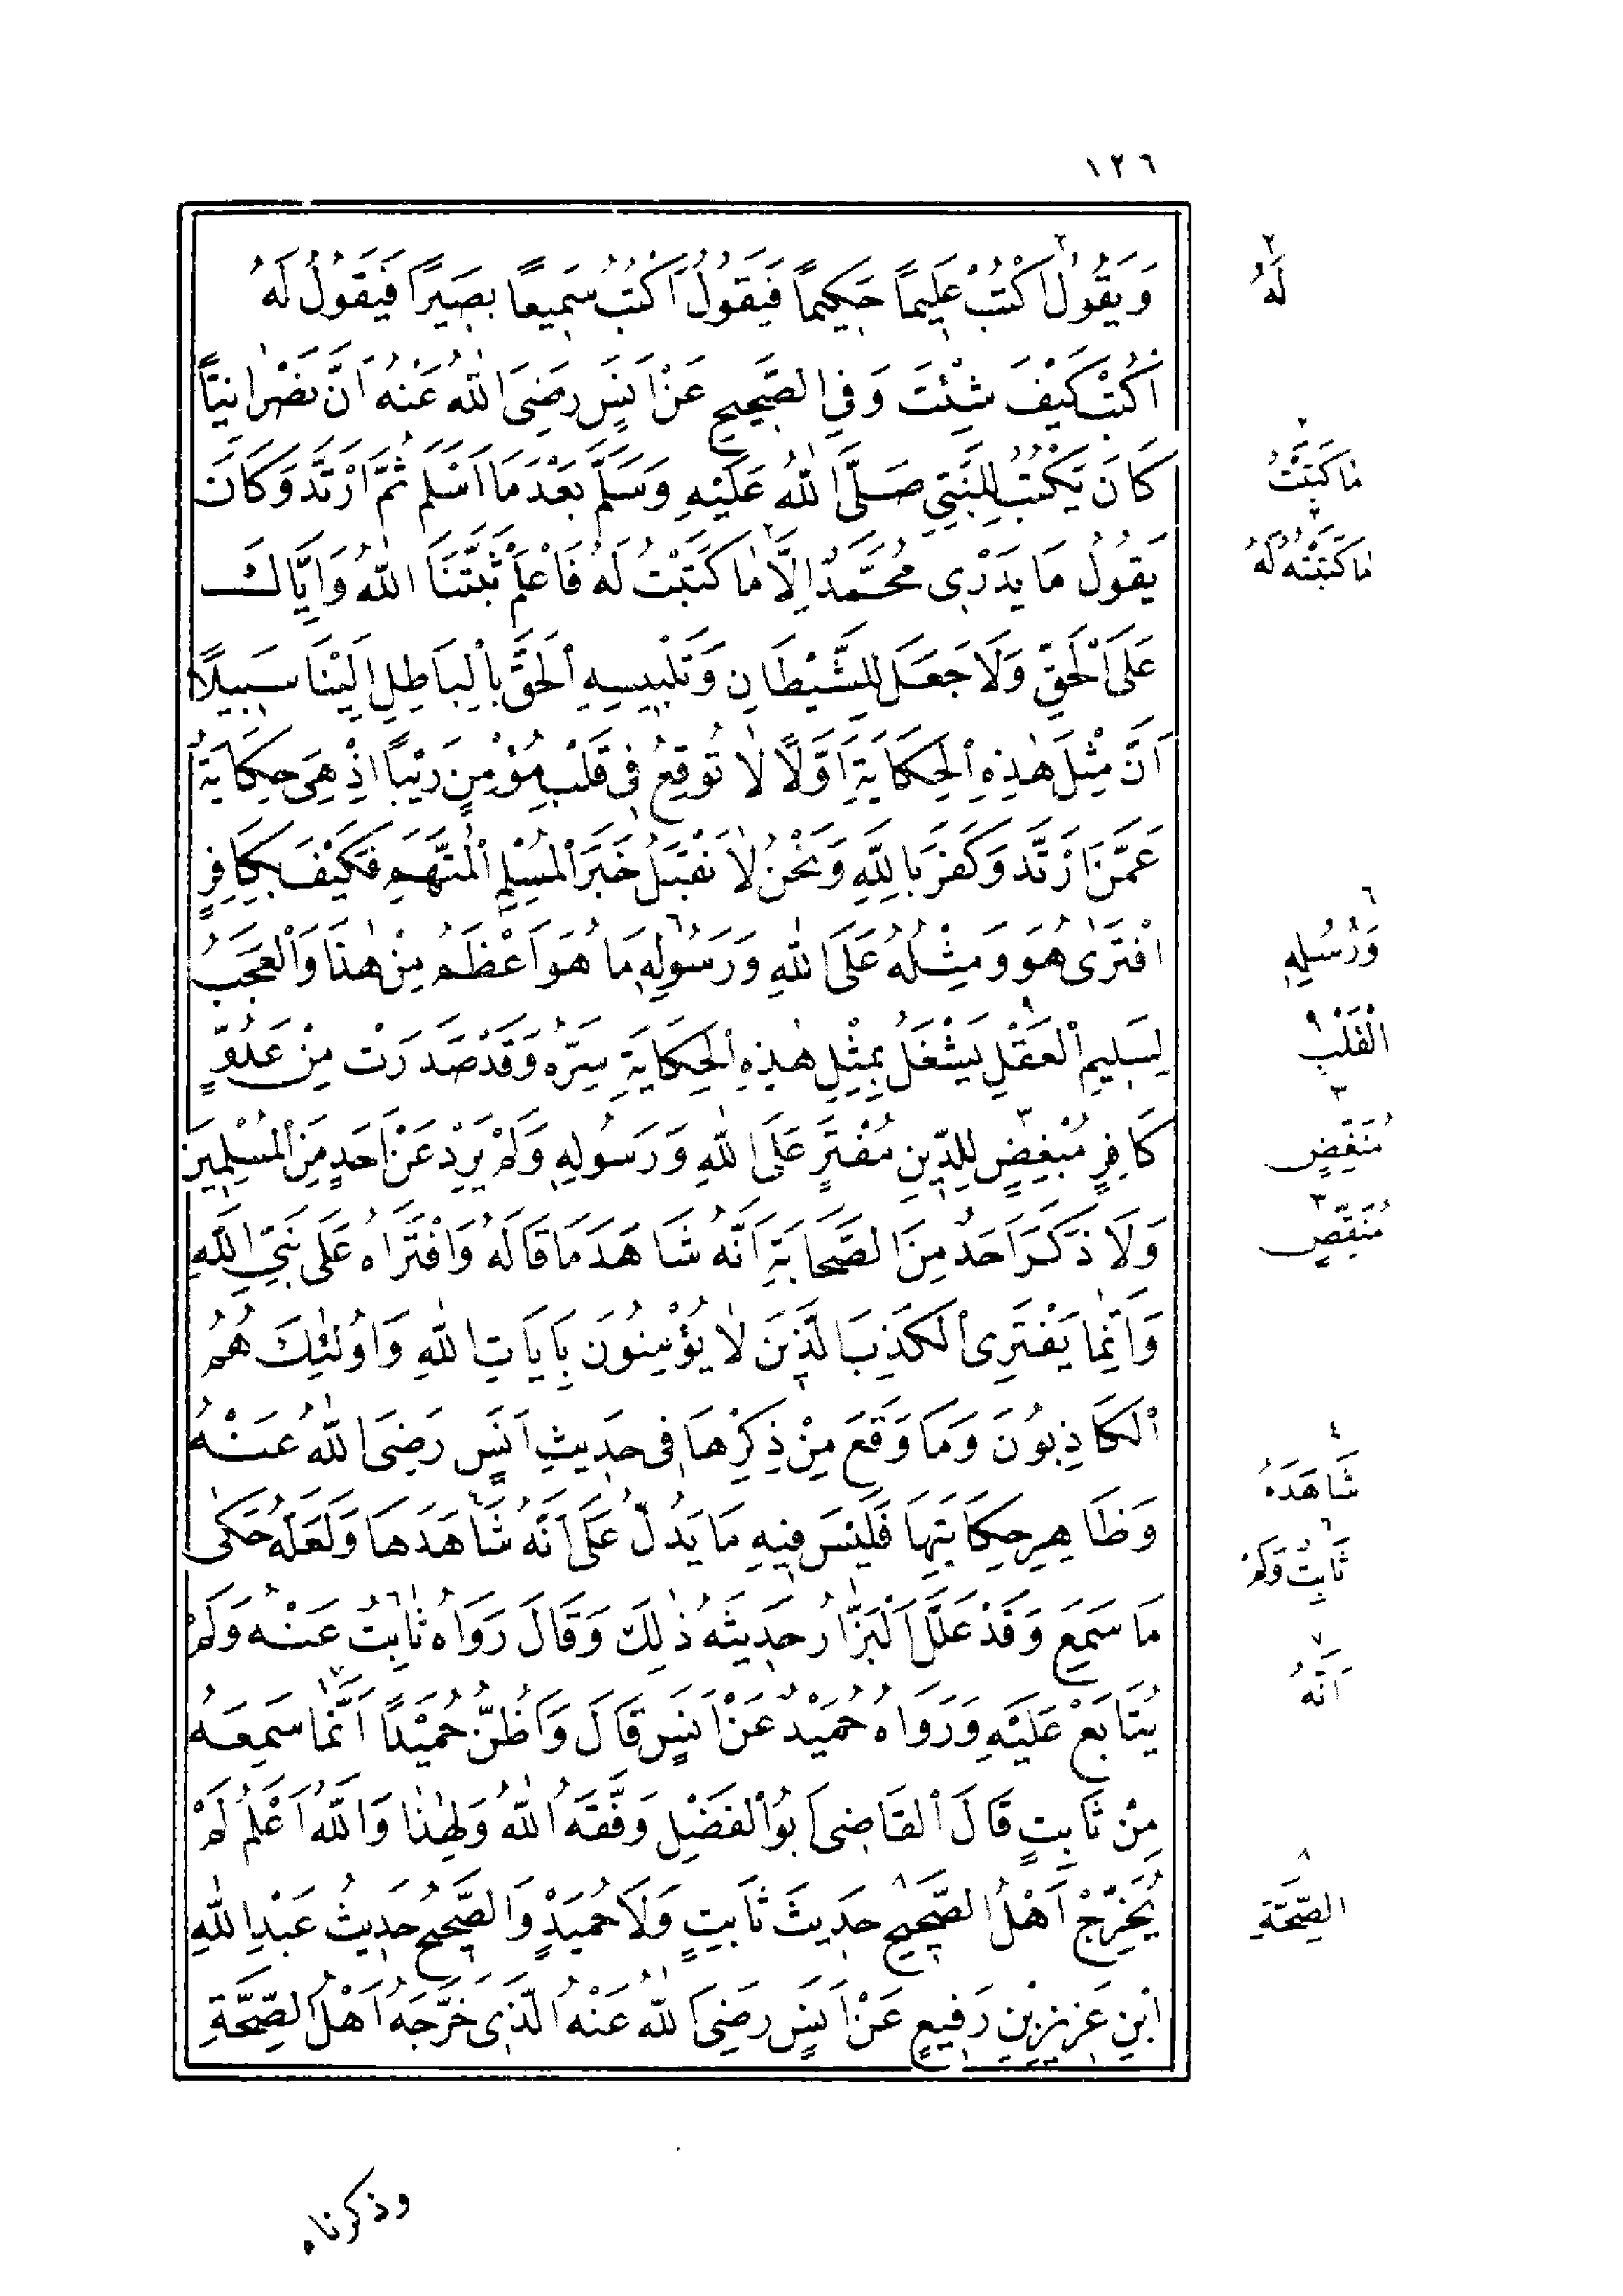 ١٢٦
وَيَقُولُ اكْتُبْ عَلِيمًا حَكِيمًا فَيَقُولُ اَكْتُبُ سَمِيعًا بَصِيرًا فَيَقُولُ لَهُ
اُكْتُبْ كَيْفَ شِئْتَ وَفِي الصَّحِيحِ عَنْ اَنَسٍ رَضِيَ اللهُ عَنْهُ اَنَّ نَصْرَانِيًّا
كَانَ يَكْتُبُ لِلنَّبِيِّ صَلَّى اللهُ عَلَيْهِ وَسَلَّمَ بَعْدَ مَا اَسْلَمَ ثُمَّ ارْتَدَّ وَكَانَ
يَقُولُ مَا يَدْرِى مُحَمَّدٌ اِلَّا مَا كَتَبْتُ لَهُ فَاعْلَمْ ثَبَّتَنَا اللهُ وَاِيَّاكَ
عَلَى الْحَقِّ وَلَا جَعَلَ لِلشَّيْطَانِ وَتَلْبِيسِهِ الْحَقَّ بِالْبَاطِلِ اِلَيْنَا سَبِيلًا
اَنَّ مِثْلَ هٰذِهِ الْحِكَايَةِ اَوَّلًا لَا تُوقِعُ فِى قَلْبِ مُؤْمِنٍ رَيْبًا اِذْ هِىَ حِكَايَةٌ
عَمَّنِ ارْتَدَّ وَكَفَرَ بِاللهِ وَنَحْنُ لَا نَقْبَلُ خَبَرَ الْمُسْلِمِ الْمُتَّهَمِ فَكَيْفَ بِكَافِرٍ
افْتَرٰى هُوَ وَمِثْلُهُ عَلَى اللهِ وَرَسُولِهِ مَا هُوَ اَعْظَمُ مِنْ هٰذَا وَالْعَجَبُ
لِسَلِيمِ الْعَقْلِ يَشْغَلُ بِمِثْلِ هٰذِهِ الْحِكَايَةِ سِرَّهُ وَقَدْ صَدَرَتْ مِنْ عَدُوٍّ
كَافِرٍ مُبْغِضٍ لِلدِّينِ مُفْتَرٍ عَلَى اللهِ وَرَسُولِهِ وَلَمْ يَرِدْ عَنْ اَحَدٍ مِنَ الْمُسْلِمِينَ
وَلَا ذَكَرَ اَحَدٌ مِنَ الصَّحَابَةِ اَنَّهُ شَاهَدَ مَا قَالَهُ وَافْتَرَاهُ عَلَى نَبِيِّ اللهِ
وَاِنَّمَا يَفْتَرِى الْكَذِبَ الَّذِينَ لَا يُؤْمِنُونَ بِاٰيَاتِ اللهِ وَاُولٰئِكَ هُمُ
الْكَاذِبُونَ وَمَا وَقَعَ مِنْ ذِكْرِهَا فِى حَدِيثِ اَنَسٍ رَضِىَ اللهُ عَنْهُ
وَظَاهِرِ حِكَايَتِهَا فَلَيْسَ فِيهِ مَا يَدُلُّ عَلَى اَنَّهُ شَاهَدَهَا وَلَعَلَّهُ حَكٰى
مَا سَمِعَ وَقَدْ عَلَّلَ الْبَزَّارُ حَدِيثَهُ ذٰلِكَ وَقَالَ رَوَاهُ ثَابِتٌ عَنْهُ وَلَمْ
يُتَابَعْ عَلَيْهِ وَرَوَاهُ حُمَيْدٌ عَنْ اَنَسٍ قَالَ وَاَظُنُّ حُمَيْدًا اِنَّمَا سَمِعَهُ
مِنْ ثَابِتٍ قَالَ الْقَاضِى اَبُو الْفَضْلِ وَفَّقَهُ اللهُ وَلِهٰذَا وَاللهُ اَعْلَمُ لَمْ
يُخَرِّجْ اَهْلُ الصَّحِيحِ حَدِيثَ ثَابِتٍ وَلَا حُمَيْدٍ وَالصَّحِيحُ حَدِيثُ عَبْدِ اللهِ
ابْنِ عَزِيزِ بْنِ رَفِيعٍ عَنْ اَنَسٍ رَضِىَ اللهُ عَنْهُ الَّذِى خَرَّجَهُ اَهْلُ الصِّحَّةِ
٢
لَهُ
٢
مَا كَتَبْتُ
٢
مَا كَتَبْتُهُ لَهُ
٦
وَرُسُلِهِ
٩
الْقَلْبِ
٣
مُنَغِّضٍ
٣
مُنَقِّصٍ
٤
شَاهَدَهُ
٦
ثَابِتٌ وَلَمْ
٧
اَنَّهُ
٨
الصِّحَّةِ
وذكرناه